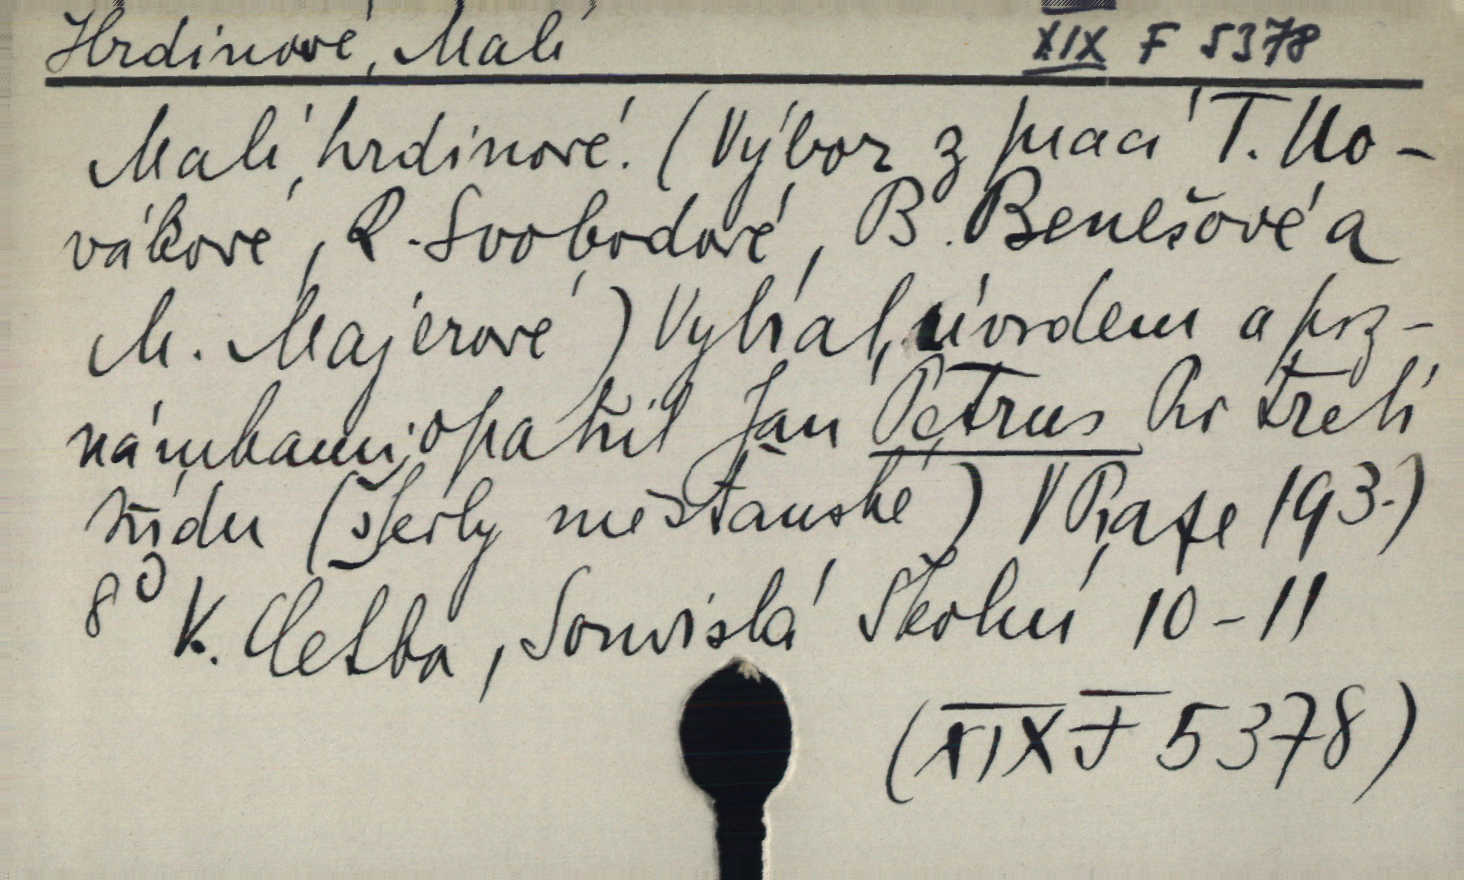 Hrdinové, Malí XIX F 5378
Malí hrdinové. (Výbor z prací T. No-
vákové, R. Svobodové, B. Benešové a
M. Majerové) Vybral, úvodem a poz-
námkami opatřil Jan Petrus Pro třetí
třídu (školy měšťanské) V Praze 193-)
8° K. Četba, Souvislá školní 10-11
(XIX F 5378)